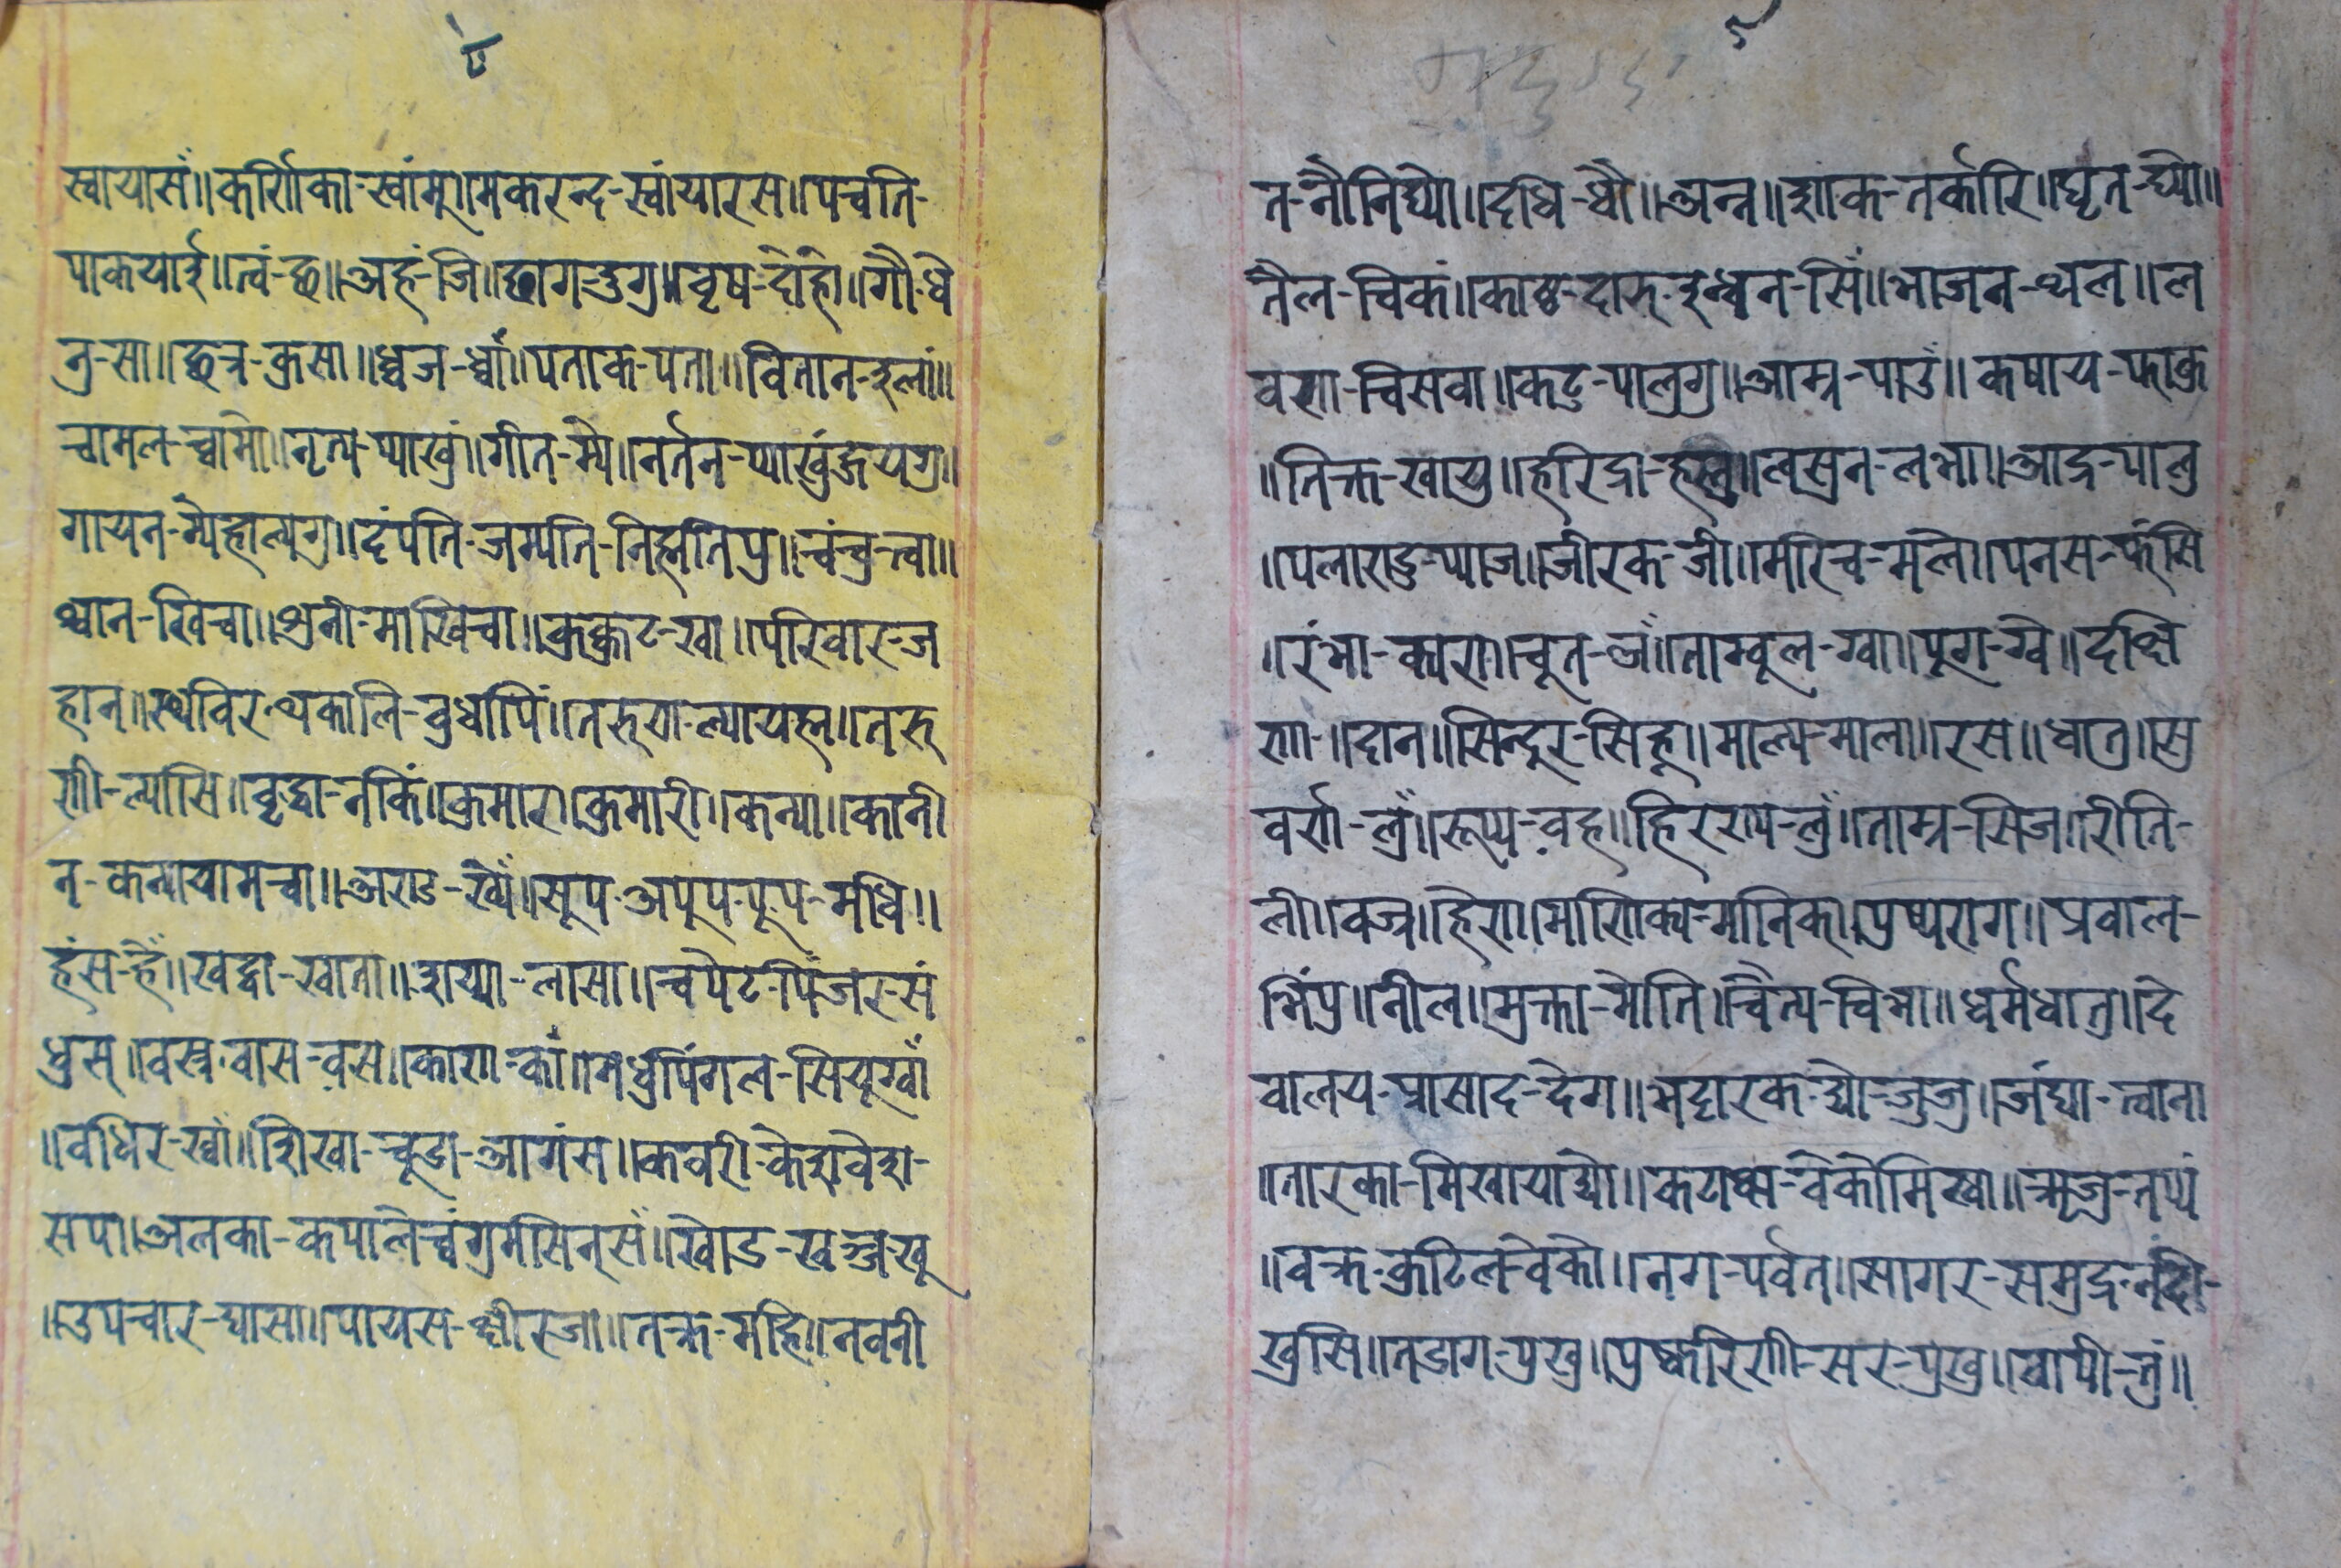 ८
स्वायासं॥कर्णिका-खांमू॥मकरन्द-स्वांयारस॥पचति-
पाकयाई॥त्वं-छ॥अहं-जि॥छाग-डुगु॥वृष-दोहं॥गौ-धे
नु-सा॥छत्र-कुसा॥ध्वज-ध्वां॥पताक-पता॥वितान-इलां॥
चामल-च्वामो॥नृत्य-प्याखुं॥गीत-म्ये॥नर्तन-प्याखुंहुयगु॥
गायन-म्येहाल्यगु॥दंपति-जम्पति-निह्मतिपु॥चंचु-त्वा॥
श्वान-खिचा॥शुनी-माखिचा॥कुक्कुट-खा॥परिवार-ज
हान्॥स्थविर-थकालि-बुधपिं॥तरुण-ल्यायह्म॥तरु
णी-ल्यासि॥वृद्धा-नकिं॥कुमार॥कुमारी॥कन्या॥कानी
न-कन्यायामचा॥अण्ड-ख्यें॥सूप-अपूप-पूप-मधि॥
हंस-हें॥खट्वा-खाता॥शय्या-लासा॥चपेट-पिंजर-सं
धुस्॥वस्त्र-वास-वस॥काण-कां॥मधुपिंगल-सियूग्वां
॥वधिर-ख्वां॥शिखा-चूडा-आगंस॥कवरी-केशवेश-
सपा॥अलका-कपालेच्वंगुमसिन्सं॥खोड-खञ्ज-खू
॥उपचार-घासा॥पायस-क्षीरजा॥तक्र-महि॥नवनी
९
त-नौनिघ्यो॥दधि-धौ॥अन्न॥शाक-तर्कारि॥घृत-घ्यो॥
तैल-चिकं॥काष्ठ-दारु-इन्धन-सिं॥भाजन-थल॥ल
वण-चिसवा॥कटु-पालुगु॥आम्र-पाउं॥कषाय-फाकु
॥तिक्त-खायु॥हरिद्रा-हलु॥लसुन-लभा॥आद्र-पालु
॥पलाण्डु-प्याज॥जीरक-जी॥मरिच-मले॥पनस-फंसि
॥रंभा-क्यरा॥चूत-अं॥ताम्बूल-ग्वा॥पूग-ग्वे॥दक्षि
णा-॥दान॥सिन्दुर-सिह्॥माल्य-माला॥रस॥धातु॥सु
वर्ण-लुं॥रूप्य-वह॥हिरण्य-लुं॥ताम्र-सिज॥रीति-
ली॥वज्र॥हिरा॥माणिक्य-मानिक॥पुष्पराग॥प्रवाल-
भिंपु॥नील॥मुक्ता-मोति॥चैत्य-चिभा॥धर्मधातु॥दे
वालय-प्रासाद-देग॥भट्टारक-द्यो-जुजु॥जंघा-त्वाना
॥तारका-मिखायाद्यो॥कटाक्ष-वेकोमिखा॥ऋजु-तप्यं
॥वक्र-कुटिल-वेको॥नग-पर्वत॥सागर-समुद्र-नंदी-
खुसि॥तडाग-पुखु॥पुष्करिणी-सर-पुखु॥वापी-तुं॥